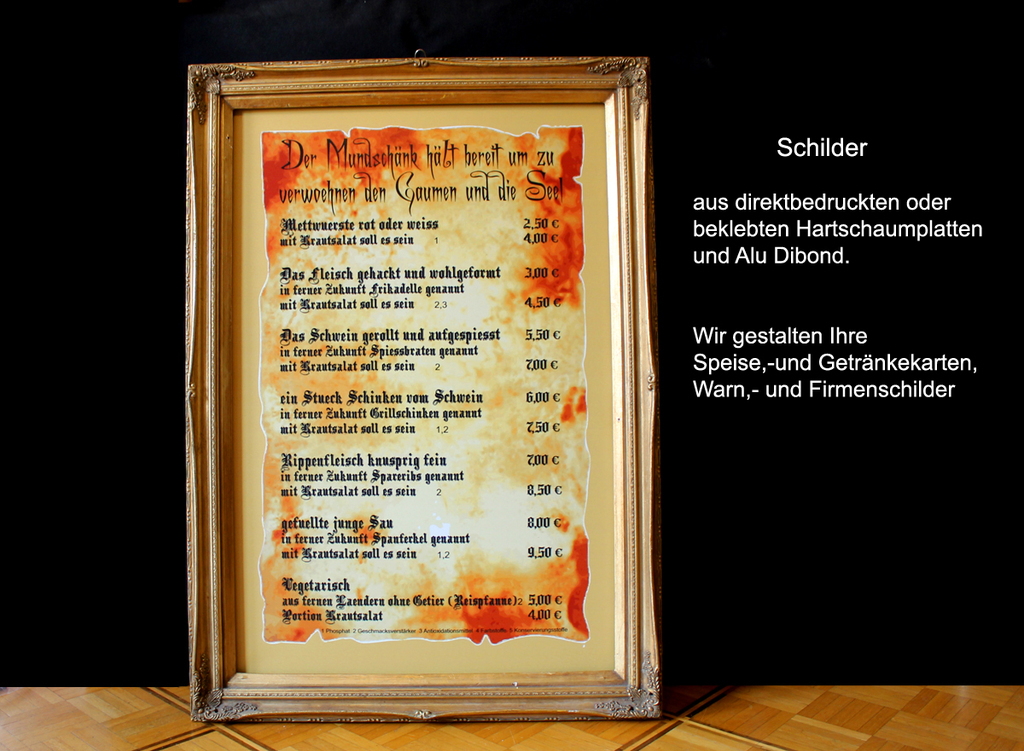 Der Mundschänk hält bereit um zu
verwoehnen den Gaumen und die Seel
Mettwuerste rot oder weiss 2,50 €
mit Krautsalat soll es sein 1 4,00 €
Das Fleisch gehackt und wohlgeformt 3,00 €
in ferner Zukunft Frikadelle genannt
mit Krautsalat soll es sein 2,3 4,50 €
Das Schwein gerollt und aufgespiesst 5,50 €
in ferner Zukunft Spiessbraten genannt
mit Krautsalat soll es sein 2 7,00 €
ein Stueck Schinken vom Schwein 6,00 €
in ferner Zukunft Grillschinken genannt
mit Krautsalat soll es sein 1,2 7,50 €
Rippenfleisch knusprig fein 7,00 €
in ferner Zukunft Spareribs genannt
mit Krautsalat soll es sein 2 8,50 €
gefuellte junge Sau 8,00 €
in ferner Zukunft Spanferkel genannt
mit Krautsalat soll es sein 1,2 9,50 €
Vegetarisch
aus fernen Laendern ohne Getier (Reispfanne)2 5,00 €
Portion Krautsalat 4,00 €
1 Phosphat 2 Geschmacksverstärker 3 Antioxidationsmittel 4 Farbstoffe 5 Konservierungsstoffe
Schilder
aus direktbedruckten oder
beklebten Hartschaumplatten
und Alu Dibond.
Wir gestalten Ihre
Speise,-und Getränkekarten,
Warn,- und Firmenschilder